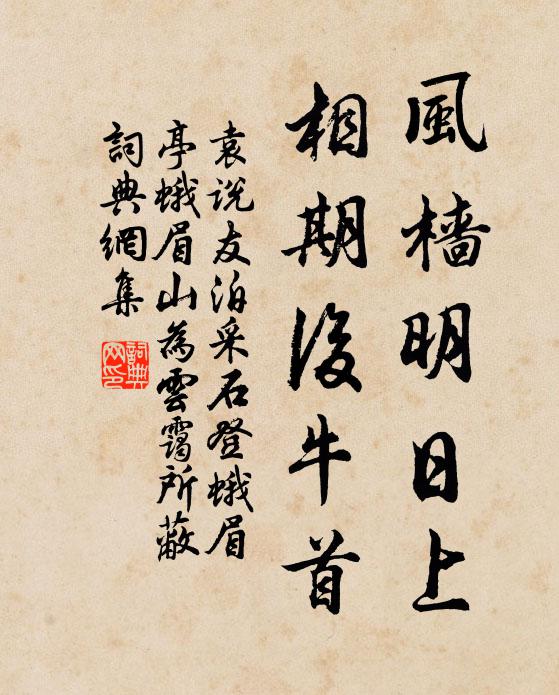 風檣明日上
相期後牛首
袁说友泊采石登蛾眉
亭蛾眉山為雲靄所蔽
詞典網集
詞典
網印